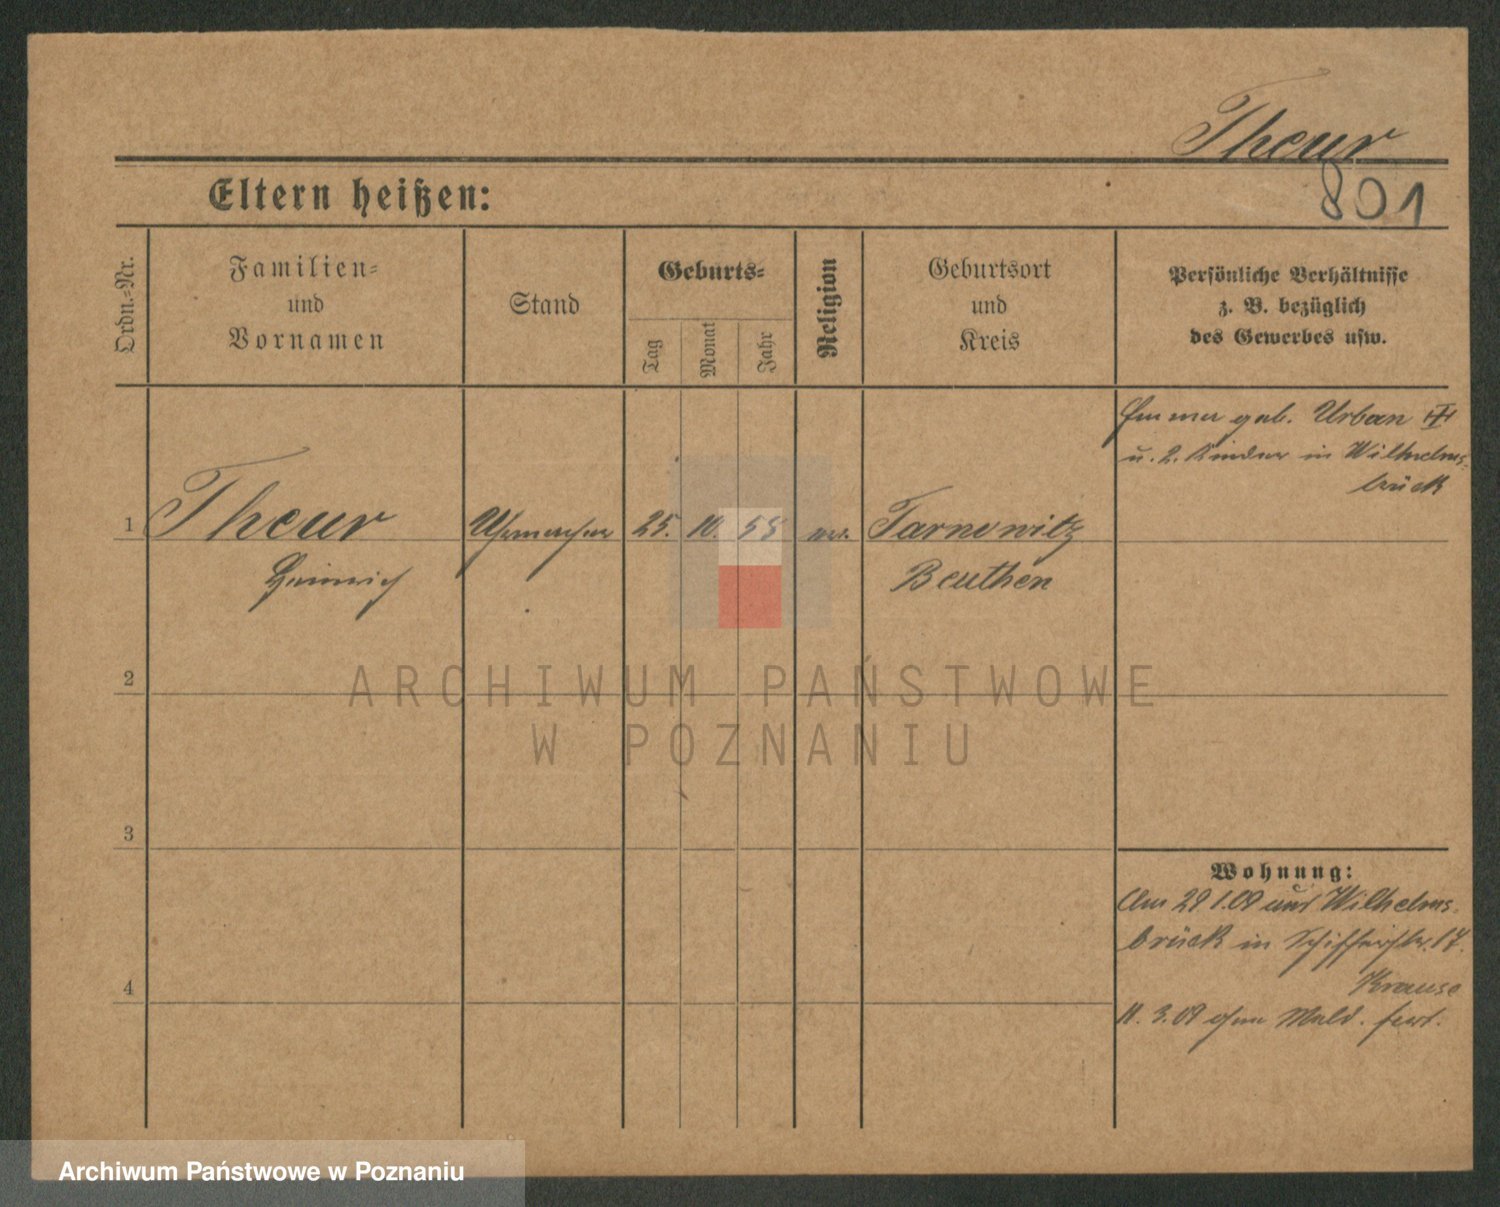 Theur
801
Eltern heißen:
Ordn.-Nr.
Familien-
und
Vornamen
Stand
Geburts-
Tag
Monat
Jahr
Religion
Geburtsort
und
Kreis
Persönliche Verhältnisse
z. B. bezüglich
des Gewerbes usw.
geb. Urban
u. 2. Kinder in Wilhelms-
brück
1
Theur
Uhrmacher
25.
10.
58
Tarnowitz
Heinrich
Beuthen
2
3
4
Wohnung:
Am 29 1.09 aus Wilhelms-
brück in Schifferstr. 17.
Krause
11. 3.09 ohne Meld. fort.
ARCHIWUM PAŃSTWOWE
W POZNANIU
Archiwum Państwowe w Poznaniu